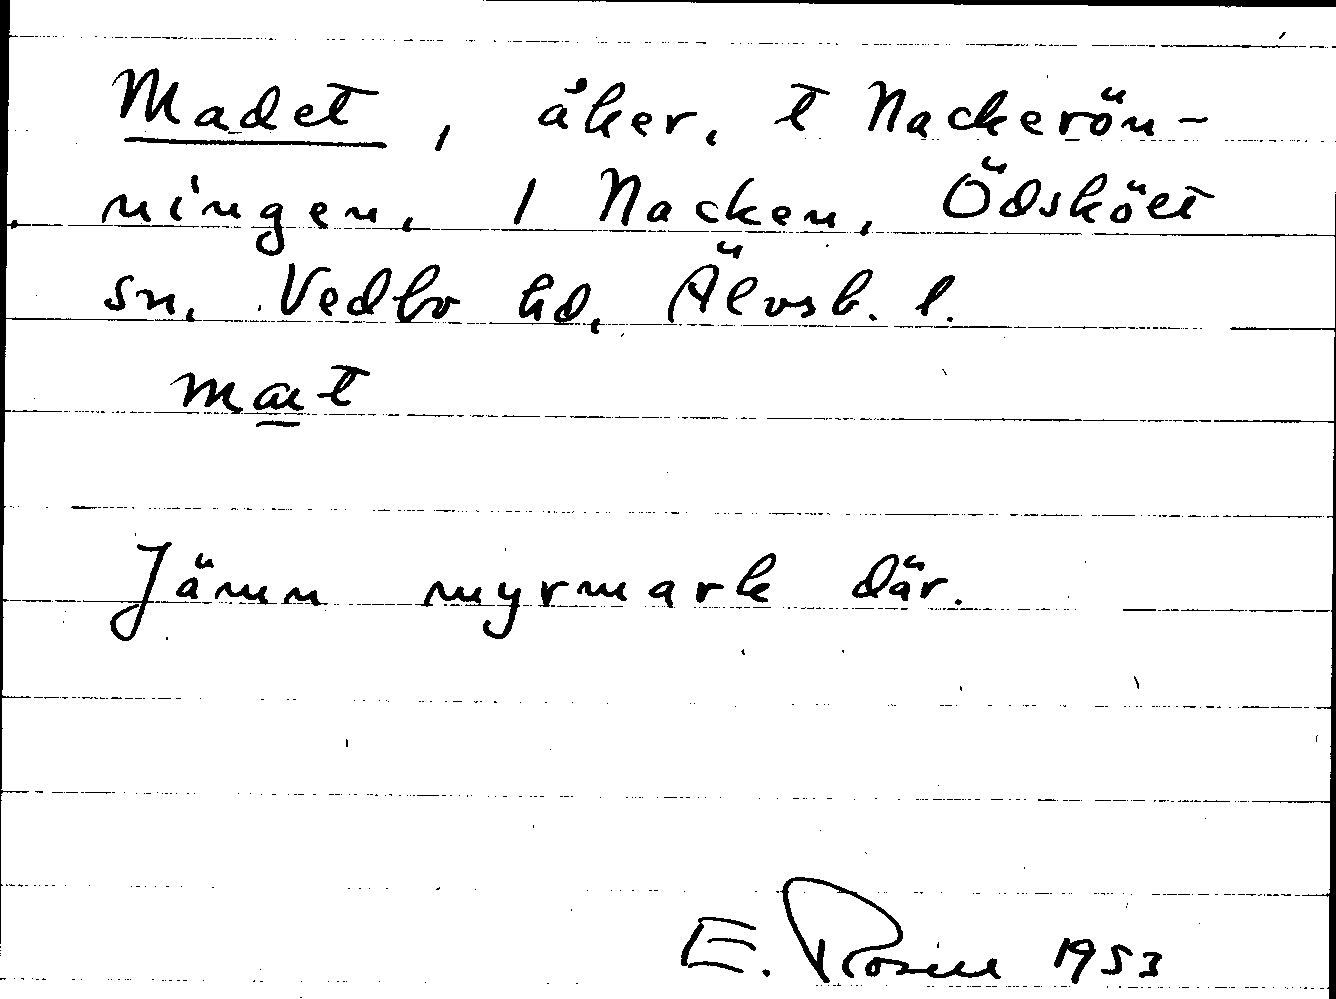 Madet, åker, t Nackerön-
ningen, 1 Nacken, Ödskölt
sn, Vedbo hd, Älvsb. l.
Jämn myrmark där.
E. Rosell 1953